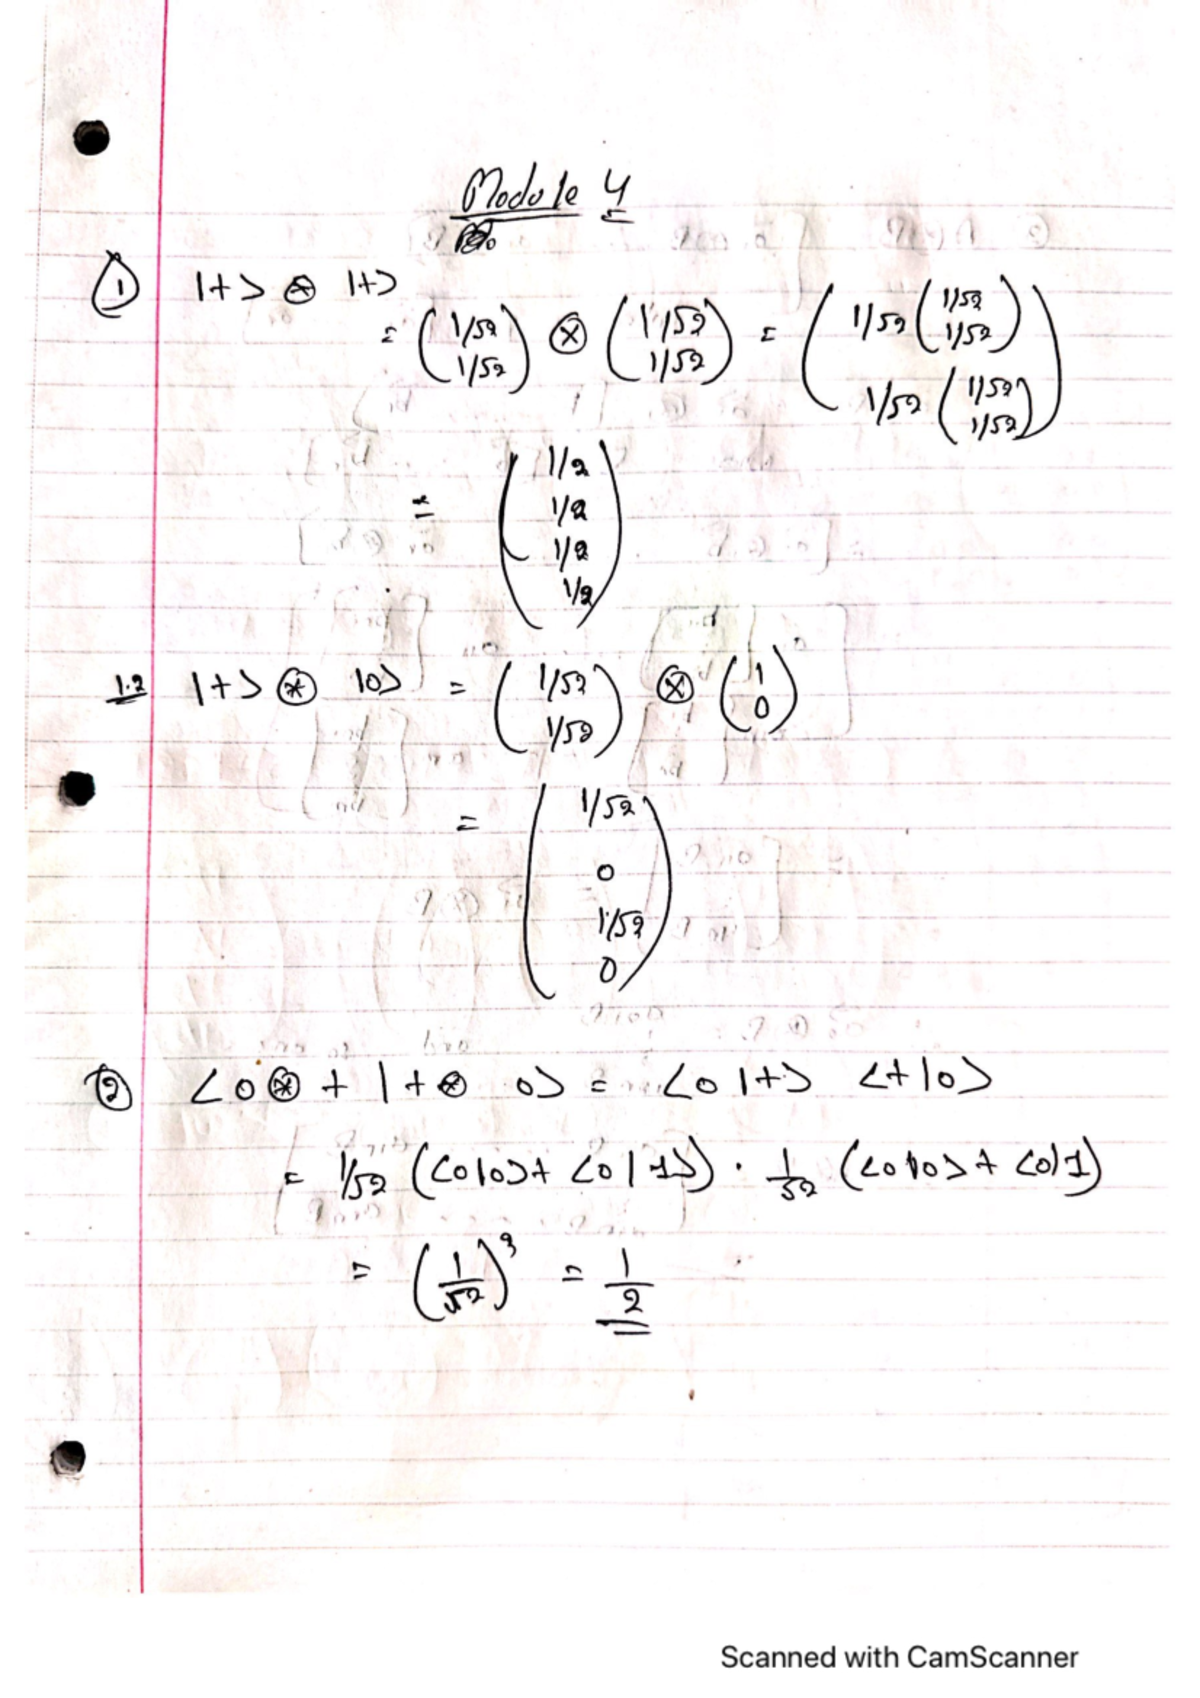 Module 4
① |+> ⊗ |+>
= (1/√2 1/√2) ⊗ (1/√2 1/√2) = (1/√2 (1/√2 1/√2) 1/√2 (1/√2 1/√2))
= (1/2 1/2 1/2 1/2)
1.2 |+> ⊗ |0> = (1/√2 1/√2) ⊗ (1 0)
= (1/√2 0 1/√2 0)
② <0 ⊗ + | + ⊗ 0> = <0|+> <+|0>
= 1/√2 (<0|0> + <0|1>) · 1/√2 (<0|0> + <0|1)
= (1/√2)² = 1/2
Scanned with CamScanner